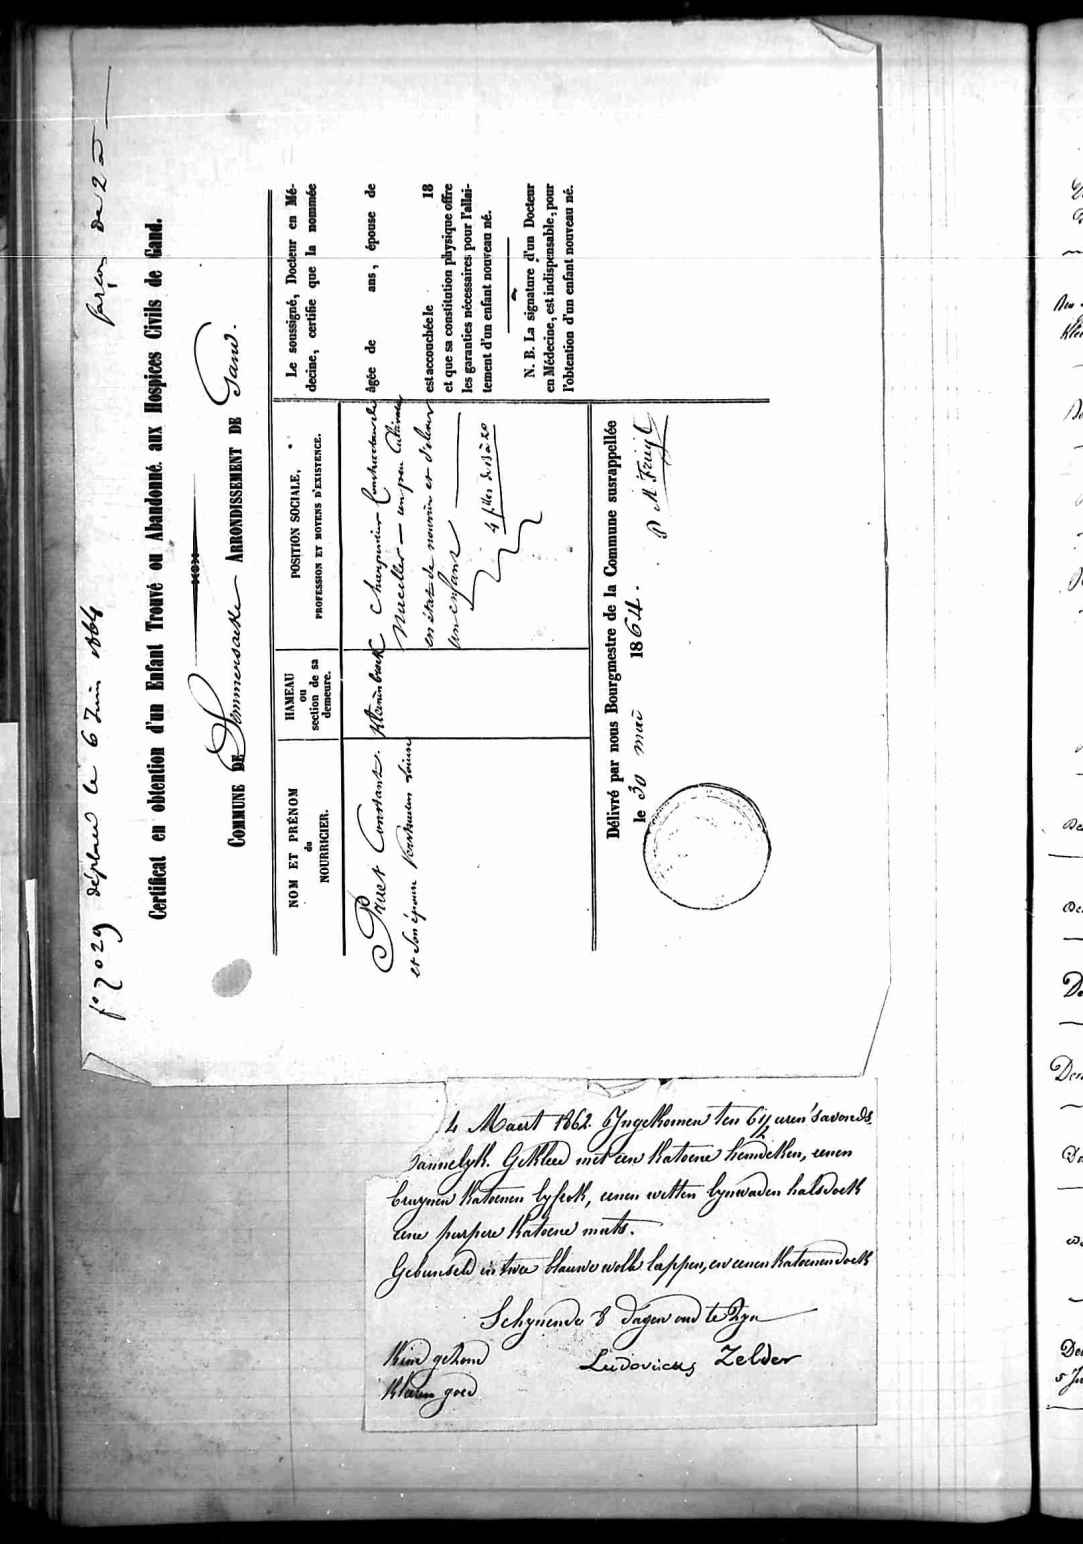 f° 7029 déplacé le 6 Juin 1864 garçon de 2 a
Certificat en obtention d'un Enfant Trouvé ou Abandonné. aux Hospices Civils de Gand.
COMMUNE DE Sommersacke ARRONDISSEMENT DE Gand.
NOM ET PRÉNOM
du
NOURRICIER.
HAMEAU
ou
section de sa
demeure.
POSITION SOCIALE,
PROFESSION ET MOYENS D'EXISTENCE.
Pruet Constant.
et son épouse
charpentier
en état de nourrir et d'élever
un enfant
4 filles de 13 à 20
Le soussigné, Docteur en Mé-
decine, certifie que la nommée
âgée de ans, épouse de
est accouchée le 18
et que sa constitution physique offre
les garanties nécessaires pour l'allai-
tement d'un enfant nouveau né.
N. B. La signature d'un Docteur
en Médecine, est indispensable, pour
l'obtention d'un enfant nouveau né.
Délivré par nous Bourgmestre de la Commune susrappellée
le 30 mai 1864.
4 Maert 1862 Ingekomen ten 6 1/2 uren 'savonds
Mannelyk. Gekleed met een katoene hemdeken, eenen
bruynen katoenen lyfrok, eenen witten lynwaden halsdoek
eene purpere katoene muts.
Gebunseld in twee blauwe wolle lappen, en eenen katoenen doek
Schynende 8 dagen oud te zyn
Kind gezond
Kleen goed
Ludovicus Zelder